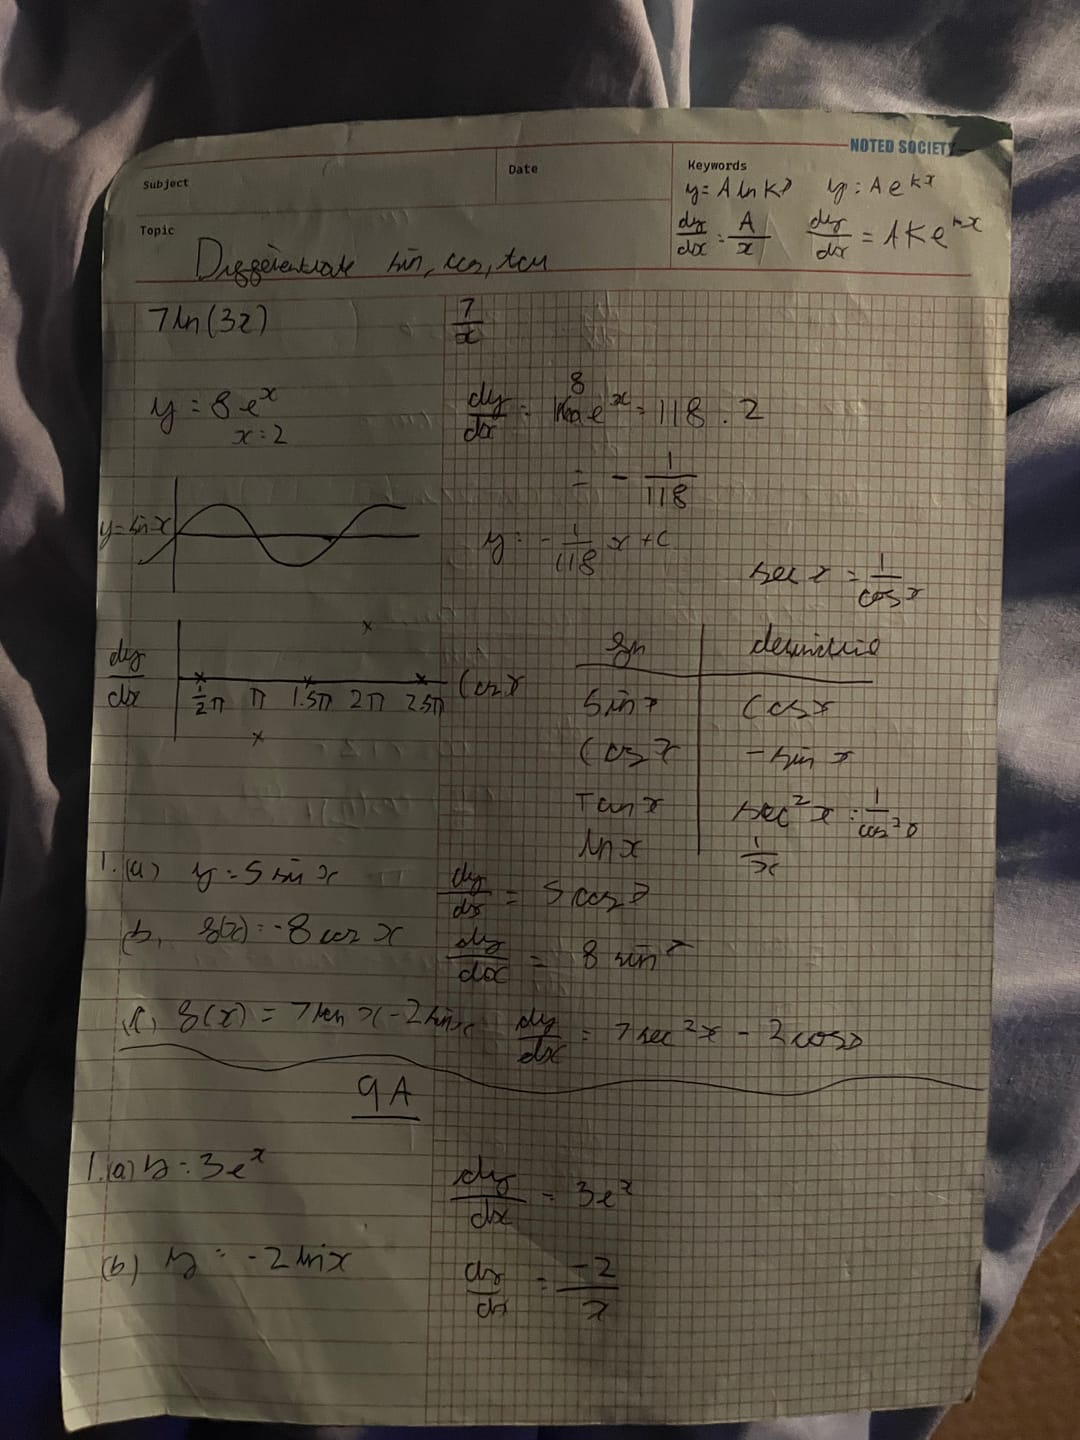 NOTED SOCIETY
Subject
Date
Keywords
y = A ln kx
y = A e^kx
dy/dx = A/x
dy/dx = A k e^kx
Topic
Differentiate sin, cos, tan
7 ln(3x)
7/x
y = 8e^x
x = 2
dy/dx = 8 e^x = 118 . 2
= - 1/118
y = - 1/118 x + c
y = sin x
sec x = 1/cos x
dy/dx
1/2π π 1.5π 2π 2.5π
cos x
fn derivative
sin x cos x
cos x - sin x
Tan x sec²x = 1/cos²
ln x 1/x
1. (a) y = 5 sin x dy/dx = 5 cos x
(b) f(x) = -8 cos x dy/dx = 8 sin x
(c) f(x) = 7 tan x - 2 sin x dy/dx = 7 sec²x - 2 cos x
9A
1. (a) y = 3e^x dy/dx = 3e^x
(b) y = -2 ln x dy/dx = -2/x